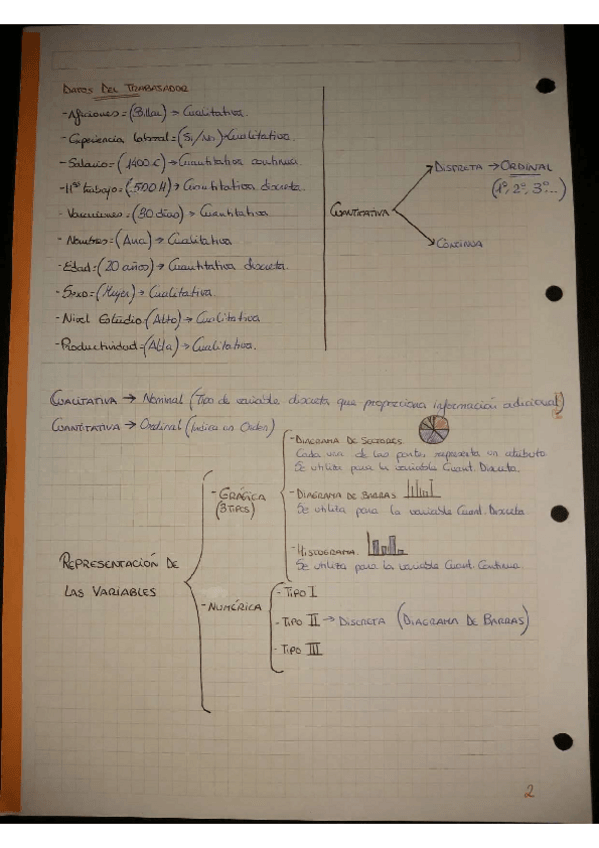 DATOS DEL TRABAJADOR
- Aficiones = (Billar) → Cualitativa.
- Experiencia laboral = (Si/No) → Cualitativa.
- Salario = (1400 €) → Cuantitativa continua.
- Nº trabajo = (500 H) → Cuantitativa discreta.
- Vacaciones = (30 días) → Cuantitativa
- Nombre = (Ana) → Cualitativa
- Edad = (20 años) → Cuantitativa discreta.
- Sexo = (Mujer) → Cualitativa.
- Nivel Estudio (Alto) → Cualitativa
- Productividad = (Alta) → Cualitativa.
CUANTITATIVA
DISCRETA → ORDINAL
(1º, 2º, 3º...)
CONTINUA
CUALITATIVA → Nominal (Tipo de variable discreta que proporciona información adicional)
CUANTITATIVA → Ordinal (Indica un Orden)
REPRESENTACIÓN DE
LAS VARIABLES
- GRÁFICA
(3 TIPOS)
- DIAGRAMA DE SECTORES
Cada una de las partes representa un atributo
Se utiliza para la variable Cuant. Discreta.
- DIAGRAMA DE BARRAS
Se utiliza para la variable Cuant. Discreta
- HISTOGRAMA
Se utiliza para la variable Cuant. Continua
- NUMÉRICA
- TIPO I
- TIPO II → DISCRETA (DIAGRAMA DE BARRAS)
- TIPO III
2